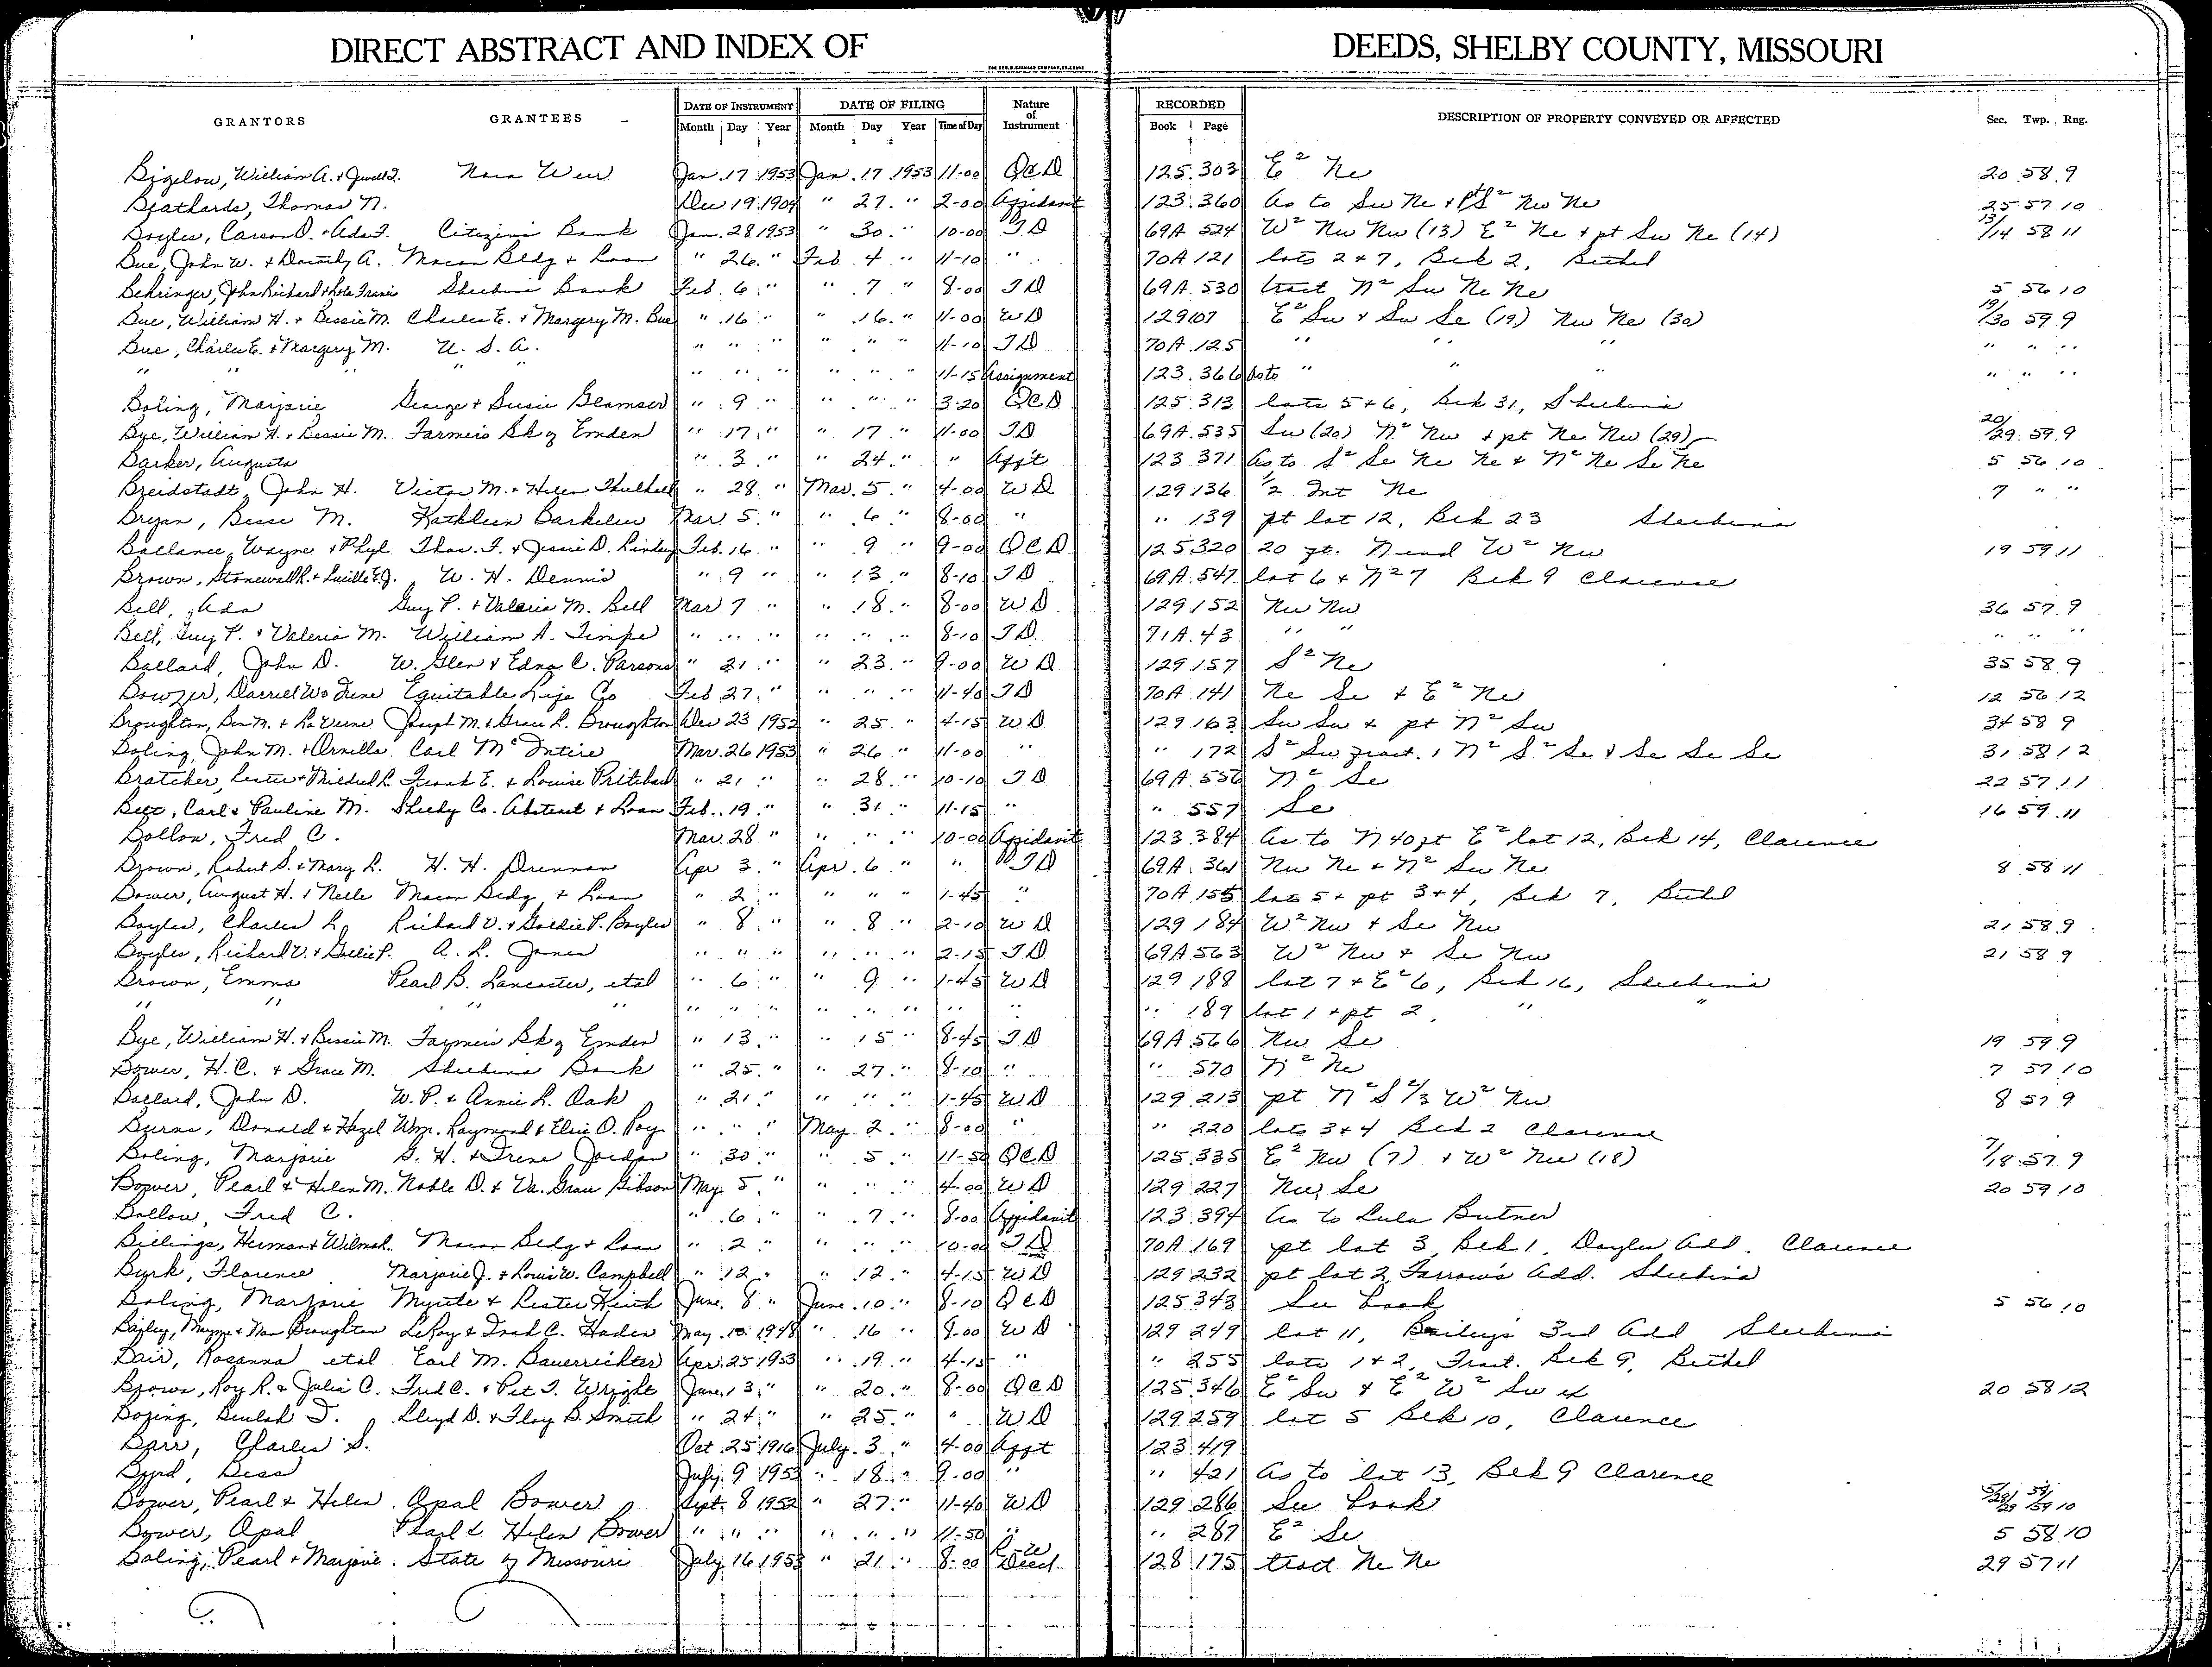 DIRECT ABSTRACT AND INDEX OF DEEDS, SHELBY COUNTY, MISSOURI
GRANTORS GRANTEES DATE OF INSTRUMENT DATE OF FILING Nature of Instrument RECORDED DESCRIPTION OF PROPERTY CONVEYED OR AFFECTED Sec. Twp. Rng.
Month Day Year Month Day Year Time of Day Book Page
Bigelow, William A. + Jewell I. Nora Weir Jan. 17 1953 Jan. 17 1953 11-00 QCD 125 303 E² Ne 20 58 9
Thomas N. Dec 19 1904 " 27 " 2-00 Affidavit 123 360 as to Sw Ne + pt S² Nw Ne 25 57 10
Boyles, Carson D. + Ada F. Citizens Bank Jan. 28 1953 " 30 " 10-00 TD 69A 524 W² Nw Nw (13) E² Ne + pt Sw Ne (14) 13/14 58 11
Bue, John W. + Dorothy A. Macon Bldg + Loan " 26 " Feb 4 " 11-10 " 70A 121 lots 2 + 7, Blk 2, Bethel
Behringer, John Richard + Lola Francis Shelbina Bank Feb 6 " " 7 " 8-00 TD 69A 530 tract N² Sw Ne Ne 5 56 10
Bue, William H. + Bessie M. Charles E. + Margery M. Bue " 16 " " 16 " 11-00 WD 129 107 E² Sw + Sw Se (19) Nw Ne (30) 19/30 59 9
Bue, Charles E. + Margery M. U. S. A. " " " " " " 11-10 TD 70A 125 " " " " " "
" " " " " " " " " " 11-15 Assignment 123 366 as to " " " " "
Boling, Marjorie George + Susie Glamser " 9 " " " " 3-20 QCD 125 313 lots 5 + 6, Blk 31, Shelbina
Bye, William H. + Bessie M. Farmers Bk of Emden " 17 " " 17 " 11-00 TD 69A 535 Sw (20) N² Nw + pt Ne Nw (29) 20/29 59 9
Barker, Augusta " 3 " " 24 " " Aff't 123 371 as to S² Se Ne Ne + N² Ne Se Ne 5 56 10
Breidstadt, John H. Victor M. + Helen " 28 " Mar. 5 " 4-00 WD 129 136 1/2 Int Ne 7 " "
Bryan, Besse M. Kathleen Mar 5 " " 6 " 8-00 " " 139 pt lot 12, Blk 23 Shelbina
Ballance, Wayne + Phyl Thos. F. + Jessie D. Lindsey Feb. 16 " " 9 " 9-00 QCD 125 320 20 N end W² Nw 19 59 11
Brown, Stonewall R. + Lucille E.J. W. H. Dennis " 9 " " 13 " 8-10 TD 69A 547 lot 6 + N² 7 Blk 9 Clarence
Bell, Ada Guy P. + Valeria M. Bell Mar 7 " " 18 " 8-00 WD 129 152 Nw Nw 36 57 9
Bell, Guy P. + Valeria M. William A. Timpe " " " " " " 8-10 TD 71A 43 " " " " "
Ballard, John D. W. Glen + Edna C. Parsons " 21 " " 23 " 9-00 WD 129 157 S² Ne 35 58 9
Bowzer, Darrell W. Irene Equitable Life Co Feb 27 " " " " 11-40 TD 70A 141 Ne Se + E² Ne 12 56 12
Broughton, Ben M. + LaVerne Joseph M. + Grace L. Broughton Dec 23 1952 " 25 " 4-15 WD 129 163 Sw Sw + pt N² Sw 34 58 9
Boling, John M. + Ornilla Carl McIntire Mar. 26 1953 " 26 " 11-00 " " 172 S² Sw fract. + N² S² Se + Se Se Se 31 58 12
Bratcher, Lester + Mildred L. Frank E. + Louise Pritchard " 21 " " 28 " 10-10 TD 69A 556 N² Se 22 57 11
Carl + Pauline M. Shelby Co. Abstract + Loan Feb. 19 " " 31 " 11-15 " " 557 Se 16 59 11
Bollow, Fred C. Mar 28 " " " " 10-00 Affidavit 123 384 as to N 40 pt E² lot 12, Blk 14, Clarence
Brown, Robert S. + Mary L. H. H. Drennan Apr 3 " Apr. 6 " " TD 69A 361 Nw Ne + N² Sw Ne 8 58 11
Bower, August H. + Nelle Macon Bldg + Loan " 2 " " " " 1-45 " 70A 155 lots 5 + pt 3 + 4, Blk 7, Bethel
Boyles, Charles L. Richard V. + Goldie P. Boyles " 8 " " 8 " 2-10 WD 129 184 W² Nw + Se Nw 21 58 9
Boyles, Richard V. + Goldie P. A. L. Jones " " " " " " 2-15 TD 69A 563 W² Nw + Se Nw 21 58 9
Brown, Emma Pearl B. Lancaster, etal " 6 " " 9 " 1-45 WD 129 188 lot 7 + E² 6, Blk 16, Shelbina
" " " " " " " " " " " " " 189 lot 1 + pt 2, " "
Bye, William H. + Bessie M. Farmers Bk of Emden " 13 " " 15 " 8-45 TD 69A 566 Nw Se 19 59 9
Bower, H.C. + Grace M. Shelbina Bank " 25 " " 27 " 8-10 " " 570 N² Ne 7 57 10
Ballard, John D. W. P. + Annie L. Oak " 21 " " " " 1-45 WD 129 213 pt N² S 2/3 W² Nw 8 57 9
Burns, Donald + Hazel Wm. Raymond + Elsie O. Poy " " " May 2 " 8-00 " " 220 lots 3 + 4 Blk 2 Clarence
Boling, Marjorie G. H. + Irene Jordan " 30 " " 5 " 11-50 QCD 125 335 E² Nw (7) + W² Nw (18) 7/18 57 9
Bower, Pearl + Helen M. Noble D. + Va. Grace Gibson May 5 " " " " 4-00 WD 129 227 Nw, Se 20 59 10
Bollow, Fred C. " 6 " " 7 " 8-00 Affidavit 123 394 as to Lula Butner
Billings, Herman + Wilmah Macon Bldg + Loan " 2 " " " " 10-00 TD 70A 169 pt lot 3, Blk 1, Doyles Add. Clarence
Burk, Florence Marjorie J. + Louis W. Campbell " 12 " " 12 " 4-15 WD 129 232 pt lot 2, Farrow's Add. Shelbina
Boling, Marjorie Myrtle + Lester Keith June 8 " June 10 " 8-10 QCD 125 343 See book 5 56 10
LeRoy + C. Haden May 10 1948 " 16 " 9-00 WD 129 249 lot 11, Bailey's 3rd Add Shelbina
Bair, Rosanna etal Earl M. Bauerrichter Apr. 25 1953 " 19 " 4-15 " " 255 lots 1 + 2, Fract. Blk 9, Bethel
Brown, Roy R. + Julia C. Fred C. + Pet I. Wright June 13 " " 20 " 8-00 QCD 125 346 E² Sw + E² W² Sw ex 20 58 12
Beulah I. Lloyd D. + Floy B. Smith " 24 " " 25 " " WD 129 259 lot 5 Blk 10, Clarence
Barr, Charles S. Oct. 25 1916 July 3 " 4-00 Aff't 123 419
Byrd, Bess July 9 1953 " 18 " 9-00 " " 421 as to lot 13, Blk 9 Clarence
Bower, Pearl + Helen Opal Bower Sept. 8 1952 " 27 " 11-40 WD 129 286 See book
Bower, Opal Pearl & Helen Bower " " " " " " 11-50 " " 287 E² Se 5 58 10
Boling, Pearl + Marjorie State of Missouri July 16 1953 " 21 " 8-00 Deed 128 175 tract Ne Ne 29 57 11